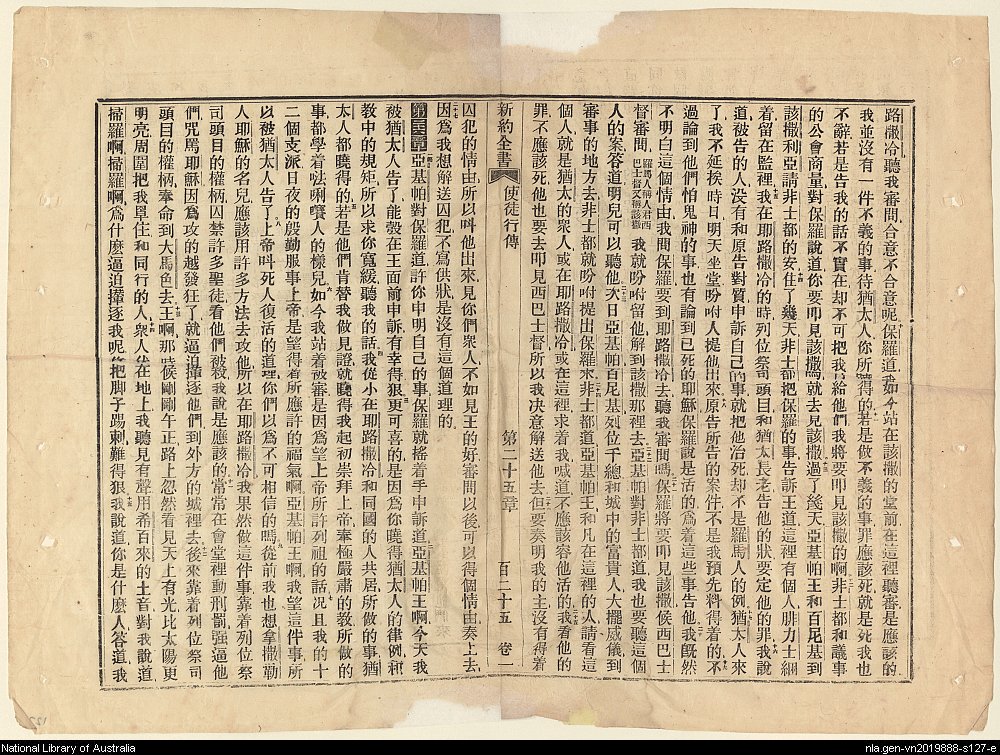 路撒冷聽我審問合意不合意呢保羅道我今站在該撒的堂前在這裡聽審是應該的
我並沒有一件不義的事待猶太人你所曉得的若是做不義的事罪應該死就是死我也
不辭若是告我的話不實在却不可把我給他們我將要叩見該撒的啊非士都和議事
的公會商量對保羅說道你要叩見該撒嗎就去見該撒過了幾天亞基帕王和百尼基到
該撒利亞請非士都的安住了幾天非士都把保羅的事告訴王道這裡有個人腓力士綑
着留在監裡我在耶路撒冷的時列位祭司頭目和猶太長老告他的狀要定他的罪我說
道被告的人没有和原告對質申訴自己的事就把他治死却不是羅馬人的例猶太人來
了我不延挨時日明天坐堂吩咐人提他出來原告所告的案件不是我預先料得着的不
過論到他們怕鬼神的事也有論到已死的耶穌保羅說是活的爲着這些事告他我旣然
不明白這個情由我問保羅要到耶路撒冷去聽我審問嗎保羅將要叩見該撒候西巴士
督審問羅馬人稱人君西巴士督又稱該撒我就吩咐留他解到該撒那裡去亞基帕對非士都道我也要聽這個
人的案答道明兒可以聽他次日亞基帕百尼基列位千總和城中的富貴人大擺威儀到
審事的地方去非士都就吩咐提出保羅來非士都道亞基帕王和凡在這裡的人請看這
個人就是猶太的衆人或在耶路撒冷或在這裡求着我喊道不應該容他活的我看他的
罪不應該死他也要去叩見西巴士督所以我决意解送他去但要奏明我的主沒有得着
新約全書 使徒行傳 第二十五章 百二十五 卷一
囚犯的情由所以呌他出來見你們衆人不如見王的好審問以後可以得個情由奏上去
因爲我想解送囚犯不寫供狀是沒有這個道理的
第二十六章亞基帕對保羅道許你申明自己的事保羅就搖着手申訴道亞基帕王啊今天我
被猶太人告了能彀在王面前申訴有幸得狠更可喜的是因爲你曉得猶太人的律例和
教中的規矩所以求你寬緩聽我的話我從小在耶路撒冷和同國的人共居所做的事猶
太人都曉得的若是他們肯替我做見證就曉得我起初崇拜上帝奉極嚴肅的教所做的
事都學着𠵽唎㘔人的樣兒如今我站着被審是因爲望上帝所許列祖的話况且我的十
二個支派日夜的殷勤服事上帝是望得着所應許的福氣啊亞基帕王啊我望這件事所
以被猶太人告了上帝呌死人復活的道理你們以爲不可相信的嗎從前我也想拿撒勒
人耶穌的名兒應該用許多方法去攻他所以在耶路撒冷我果然做這件事靠着列位祭
司頭目的權柄囚禁許多聖徒看他們被殺我說是應該的常常在會堂裡動刑罰强逼他
們咒罵耶穌因爲攻的越發狂了就逼迫攆逐他們到外方的城裡去後來靠着列位祭司
頭目的權柄奉命到大馬色去王啊那時候剛剛午正路上忽然看見天上有光比太陽更
明亮周圍把我罩住和同行的人衆人伏在地上我聽見有聲用希百來的土音對我說道
掃羅啊掃羅啊爲什麼逼迫攆逐我呢把脚子踢刺難得狠我說道你是什麼人答道我
National Library of Australia
nla.gen-vn2019888-s127-e